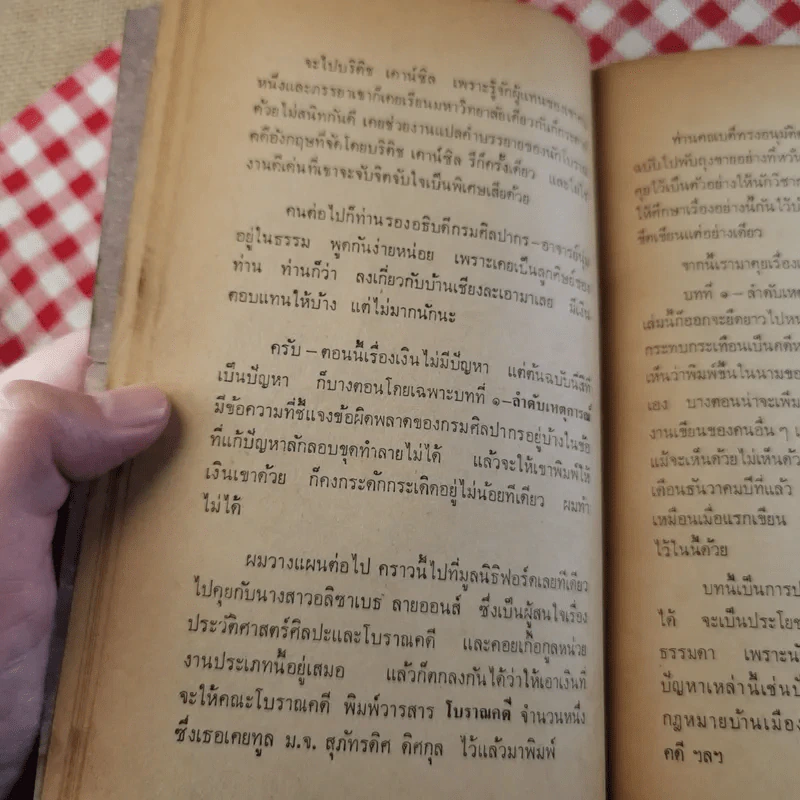 จะไปบริติช เคาน์ซิล เพราะรู้จักผู้แทนของเขาคน
หนึ่งและภรรยาเขาก็เคยเรียนมหาวิทยาลัยเดียวกันก็กระดาก
ด้วยไม่สนิทกันดี เคยช่วยงานแปลคำบรรยายของนักโบราณ
คดีอังกฤษที่จัดโดยบริติช เคาน์ซิล รึก็ครั้งเดียว และไม่ใช่
งานดีเด่นที่เขาจะจับจิตจับใจเป็นพิเศษเสียด้วย
คนต่อไปก็ท่านรองอธิบดีกรมศิลปากร–อาจารย์นุ่ม
อยู่ในธรรม พูดกันง่ายหน่อย เพราะเคยเป็นลูกศิษย์ของ
ท่าน ท่านก็ว่า ลงเกี่ยวกับบ้านเชียงละเอามาเลย มีเงิน
ตอบแทนให้บ้าง แต่ไม่มากนักนะ
ครับ–ตอนนี้เรื่องเงินไม่มีปัญหา แต่ต้นฉบับนี่สิที่
เป็นปัญหา ก็บางตอนโดยเฉพาะบทที่ ๑–ลำดับเหตุการณ์
มีข้อความที่ชี้แจงข้อผิดพลาดของกรมศิลปากรอยู่บ้างในข้อ
ที่แก้ปัญหาลักลอบขุดทำลายไม่ได้ แล้วจะให้เขาพิมพ์ให้
เงินเขาด้วย ก็คงกระดักกระเดิดอยู่ไม่น้อยทีเดียว ผมทำ
ไม่ได้
ผมวางแผนต่อไป คราวนี้ไปที่มูลนิธิฟอร์ดเลยทีเดียว
ไปคุยกับนางสาวอลิซาเบธ ลายออนส์ ซึ่งเป็นผู้สนใจเรื่อง
ประวัติศาสตร์ศิลปะและโบราณคดี และคอยเกื้อกูลหน่วย
งานประเภทนี้อยู่เสมอ แล้วก็ตกลงกันได้ว่าให้เอาเงินที่
จะให้คณะโบราณคดี พิมพ์วารสาร โบราณคดี จำนวนหนึ่ง
ซึ่งเธอเคยทูล ม.จ. สุภัทรดิศ ดิศกุล ไว้แล้วมาพิมพ์
ท่านคณบดีทรงอนุมัติ
ฉบับไปพับถุงขายอย่างที่
คุยไว้เป็นตัวอย่างให้นักวิชา
ให้ศึกษาเรื่องอย่างนี้กันไว้
ขีดเขียนแต่อย่างเดียว
จากนี้เรามาคุยเรื่อง
บทที่ ๑–ลำดับเหตุ
เล่มนี้ก็ออกจะยืดยาวไป
กระทบกระเทือนเป็นคดี
เห็นว่าพิมพ์ขึ้นในนามของ
เอง บางตอนน่าจะเพิ่ม
งานเขียนของคนอื่น ๆ
แม้จะเห็นด้วยไม่เห็นด้วย
เดือนธันวาคมปีที่แล้ว
เหมือนเมื่อแรกเขียน
ไว้ในนี้ด้วย
บทนี้เป็นการ
ได้ จะเป็นประโยช
ธรรมดา เพราะ
ปัญหาเหล่านี้เช่น
กฎหมายบ้านเมือง
คดี ฯลฯ